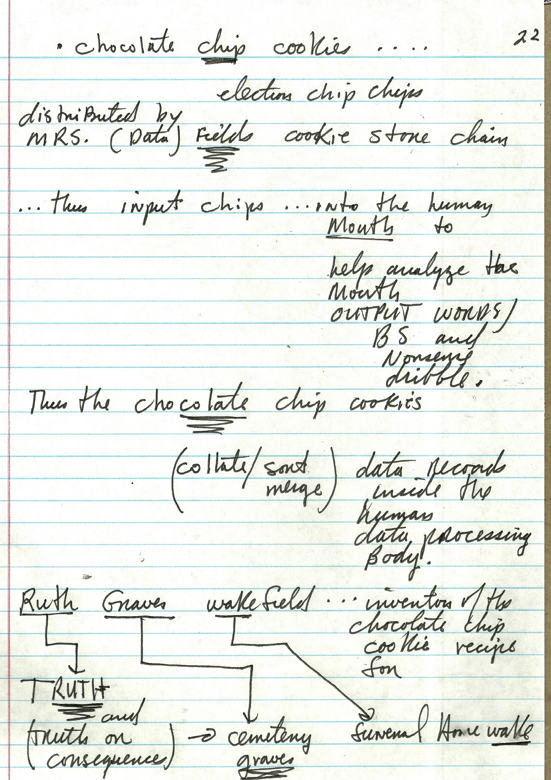 22
• chocolate chip cookies ....
election chip chips
distributed by
MRS. (Data) Fields cookie store chain
... thus input chips ... into the human
Mouth to
help analyze the
Mouth
OUTPUT WORDS/
BS and
Nonsense
dribble.
Thus the chocolate chip cookies
(collate/sort data records
merge) inside the
human
data processing
Body.
Ruth Graves wakefield ... inventor of the
chocolate chip
cookie recipe
for
TRUTH
and
(truth or → cemetery funeral Home wake
consequences) graves